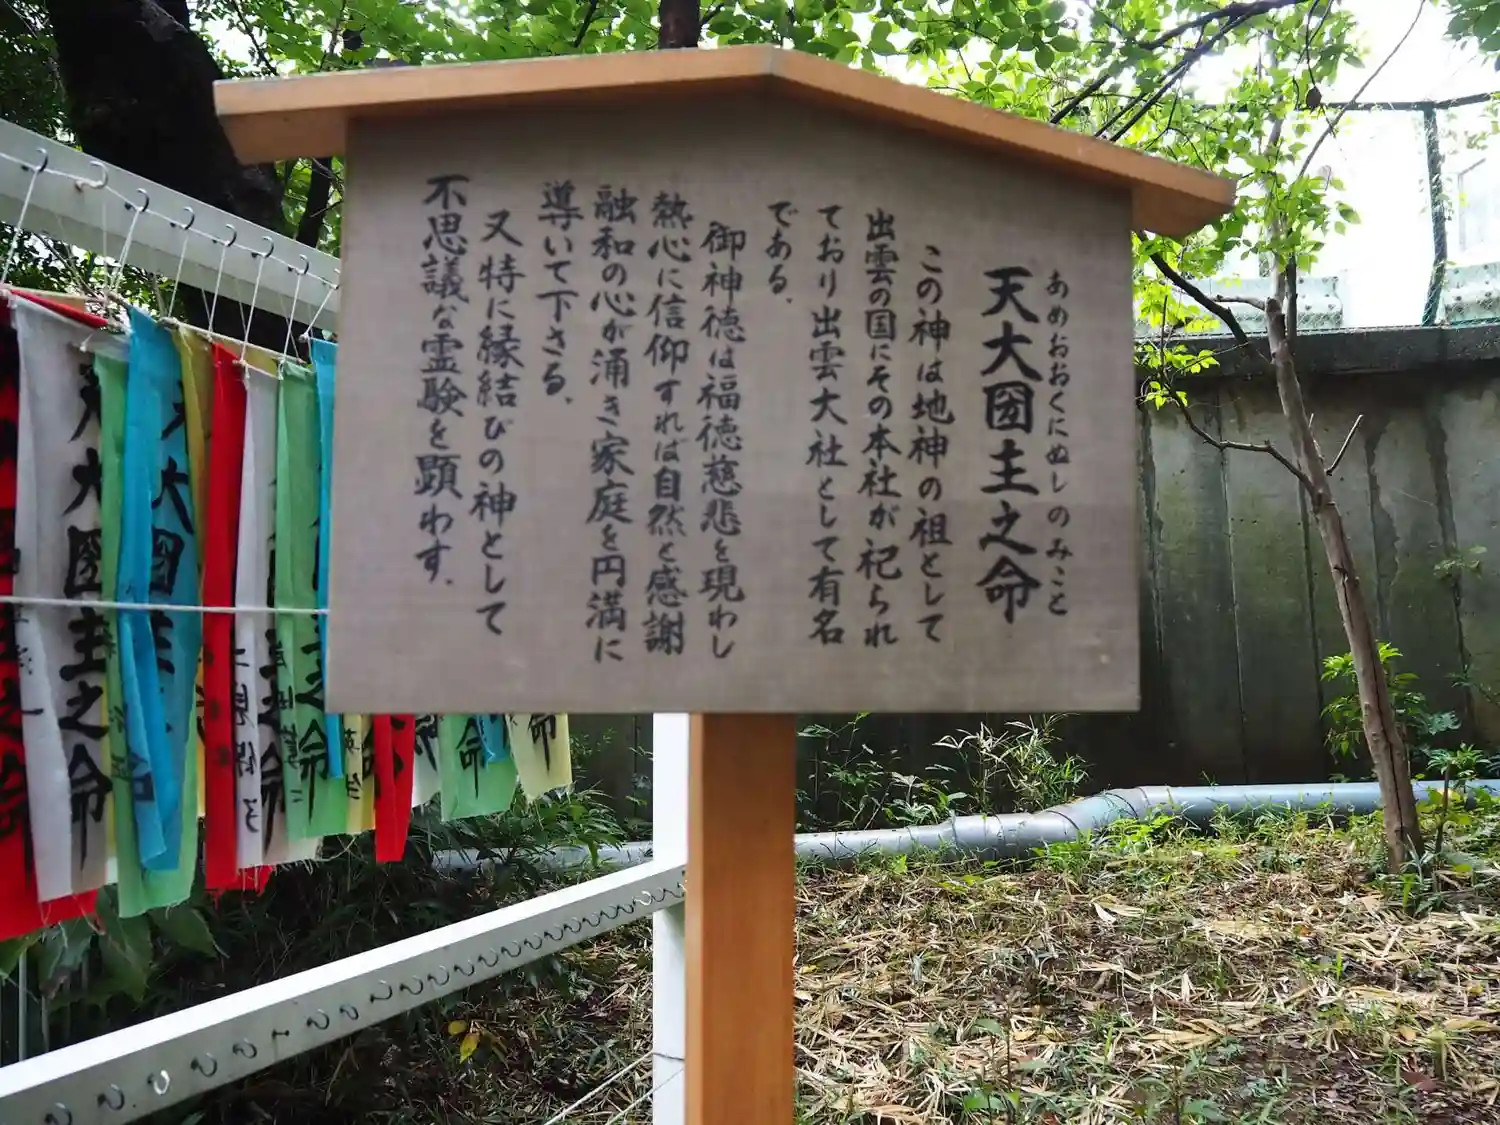 あめおおくにぬしのみこと
天大圀主之命
この神は地神の祖として
出雲の国にその本社が祀られ
ており出雲大社として有名
である.
御神徳は福徳慈悲を現わし
熱心に信仰すれば自然と感謝
融和の心が涌き家庭を円満に
導いて下さる.
又特に縁結びの神として
不思議な霊験を顕わす.
大圀主之命
大圀主
之命
命
命